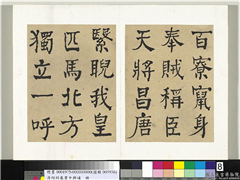 百寮竄身
奉賊稱臣
天將昌唐
繄睨我皇
匹馬北方
獨立一呼
8